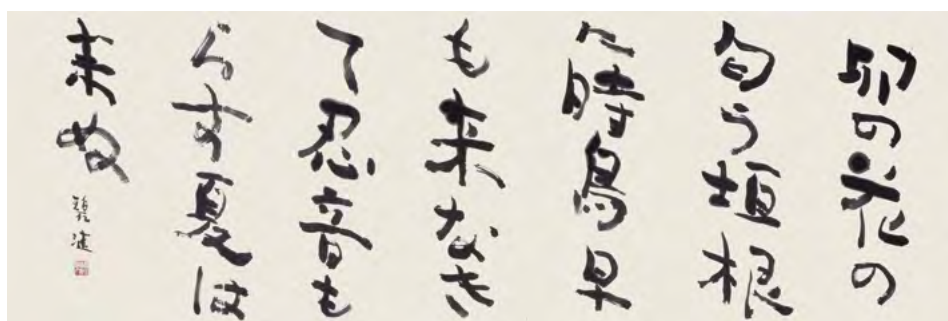 卯の花の
匂う垣根
に時鳥早
も来なき
て忍音も
らす夏は
来ぬ